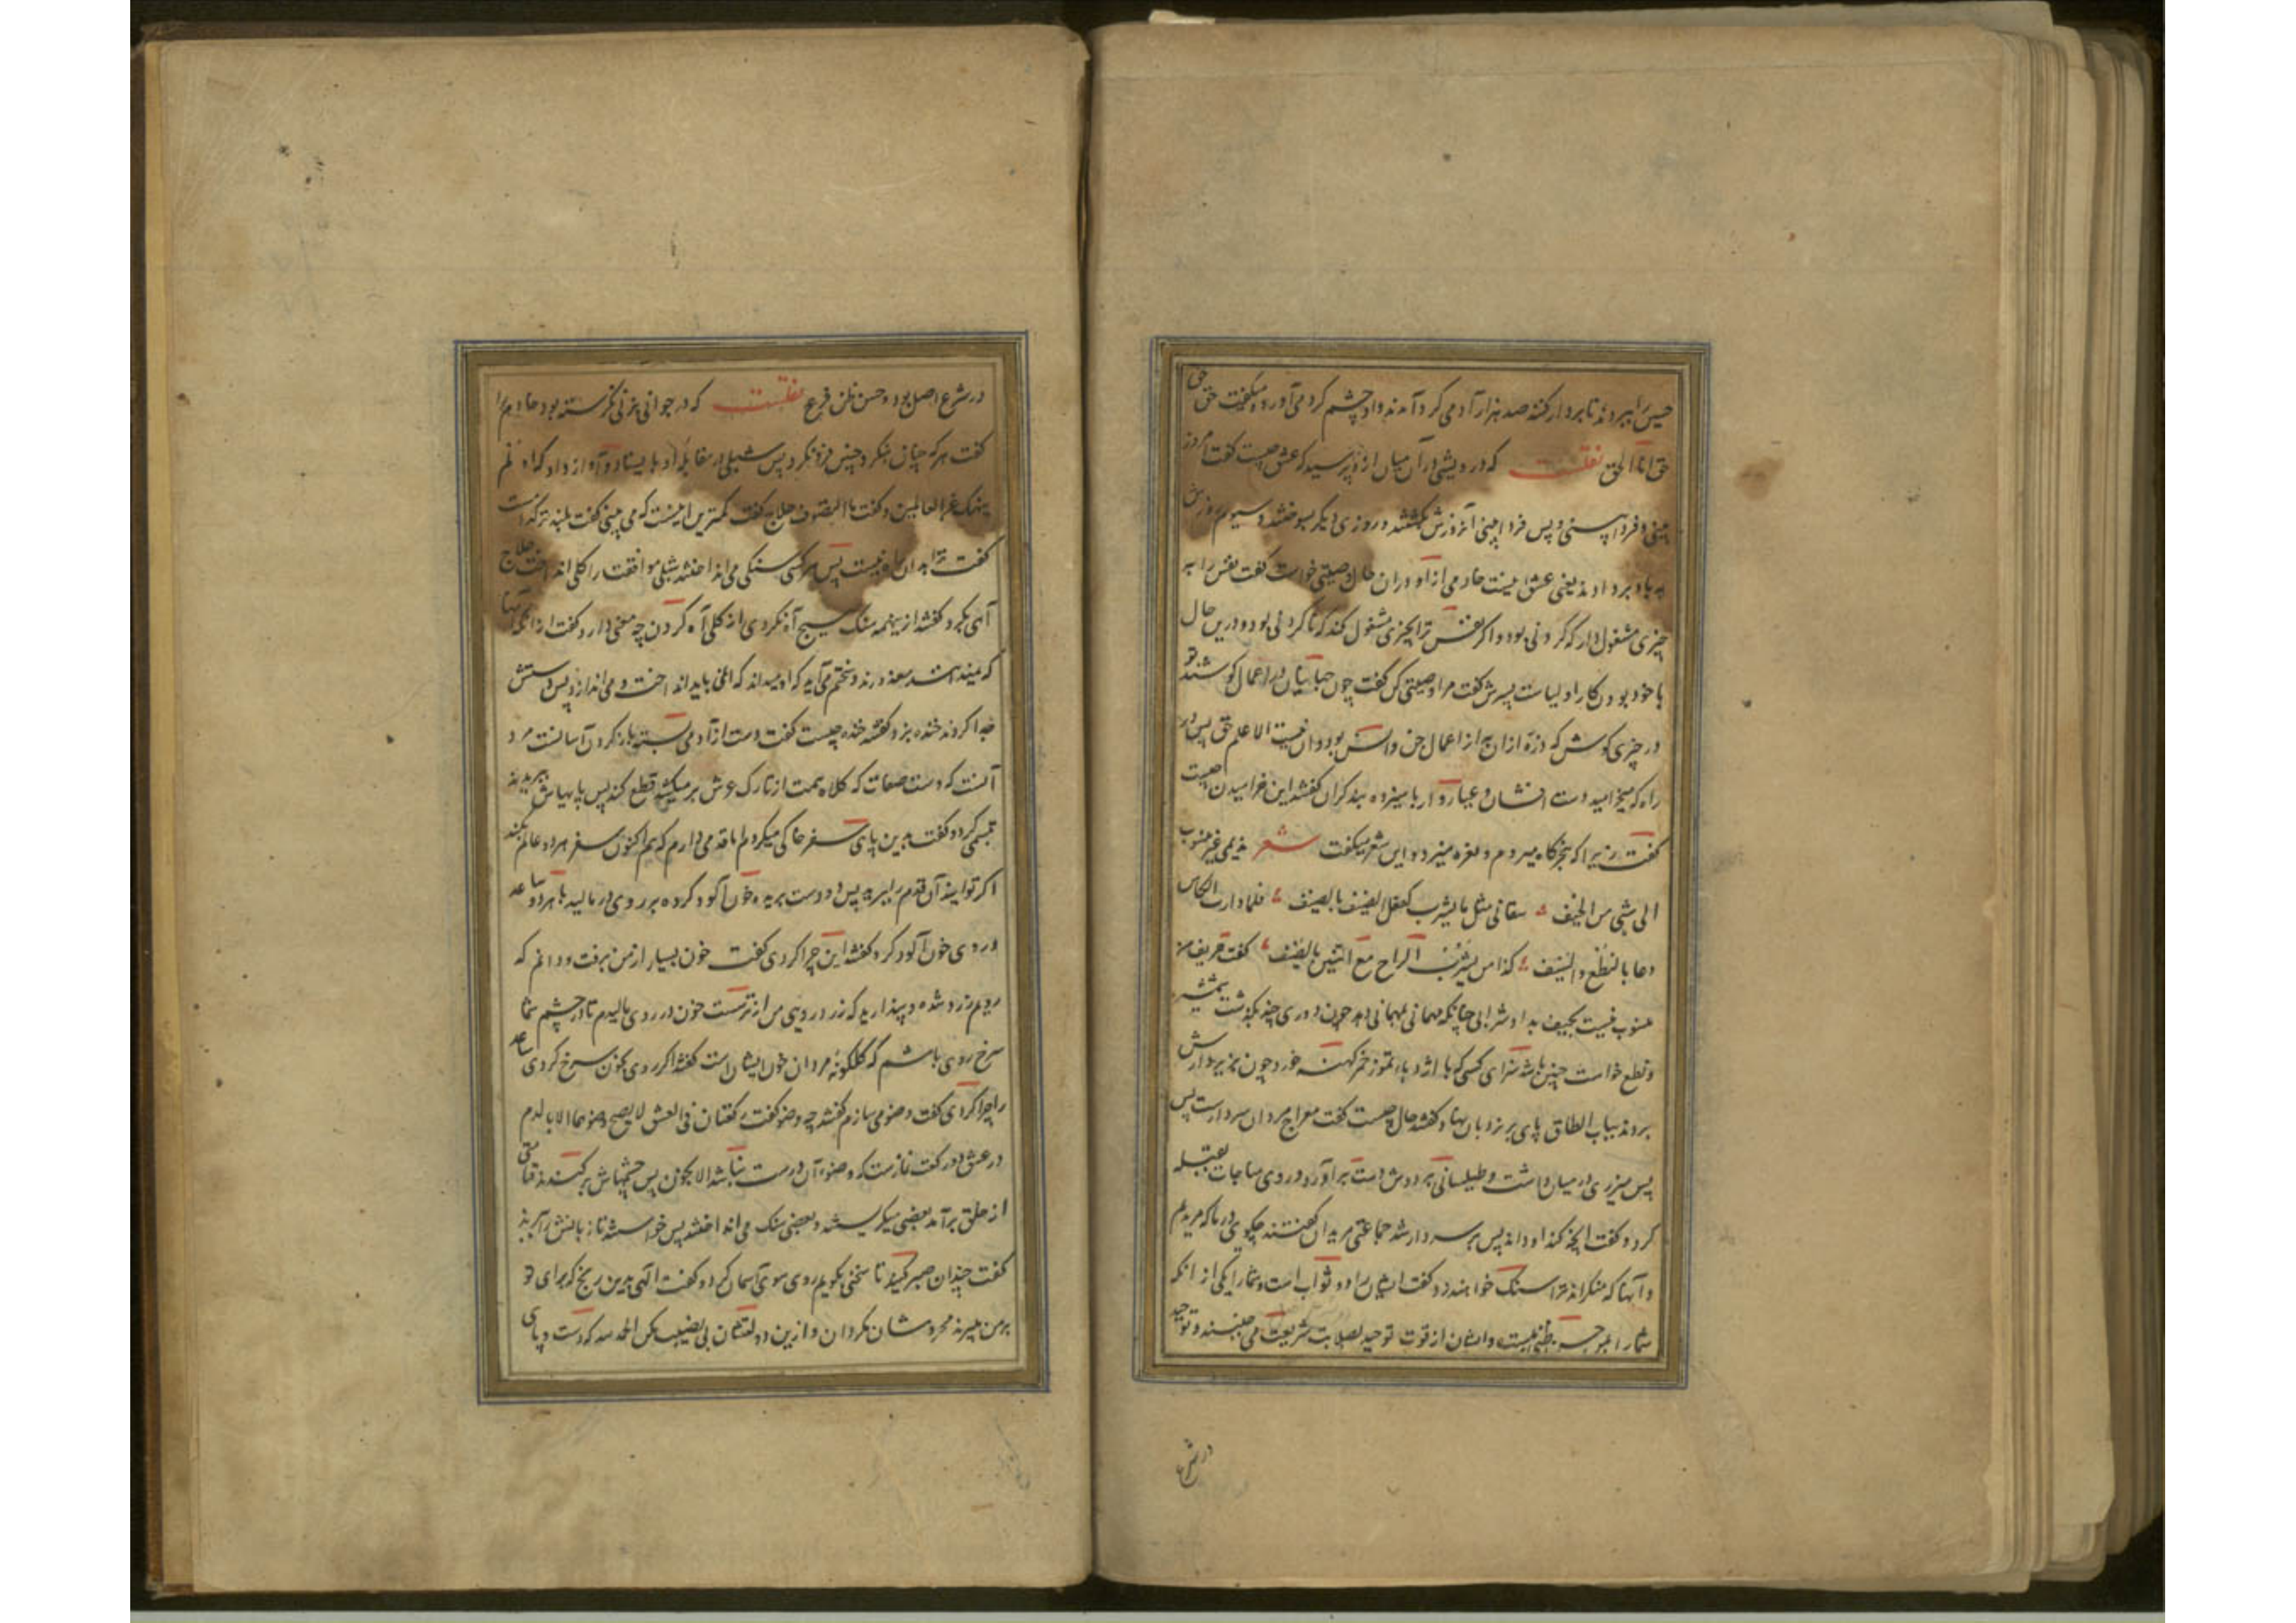 حسین را ببردند تا بردار کنند صد هزار آدمی گرد آمدند و او چشم گرد می آورد و میگفت حق حق
حق انا الحق نقلست که درویشی در آن میان از او پرسید که عشق چیست گفت امروز
بینی و فردا بینی و پس فردا بینی آنروزش بکشتند و روزی دیگر بسوختند و سیوم روزش
به باد بردادند یعنی عشق اینست خادمی از او در آن حال وصیتی خواست گفت نفس را به
چیزی مشغول دار که کردنی بود و اگر نفس ترا بچیزی مشغول کند که ناکردنی بود و درین حال
با خود بودن کار اولیاست پسرش گفت مرا وصیتی کن گفت چون جهانیان در اعمال کوشند تو
در چیزی کوش که ذره از آن به از اعمال جن و انس بود و آن نیست الا علم حق پس در
راه که میخرامید دست افشان و عیاروار با سیزده بند گران گفتند این خرامیدن چیست
گفت زیرا که بنحرگاه میروم و نعره میزد و این شعر میگفت شعر ندیمی غیر منسوب
الی شی من الحیف سقانی مثل ما یشرب کفعل الضیف بالضیف فلما دارت الکاس
دعا بالنطع والسیف کذا من یشرب الراح مع التنین بالصیف گفت حریف من
منسوب نیست بحیف بداد شرابی چنانکه مهمانی مهمانی را دهد چون دوری چند بگذشت شمشیر
و نطع خواست چنین باشد سزای کسی که با اژدها در تموز خمر کهنه خورد چون بزیر دارش
بردند بباب الطاق پای بر نردبان نهاد گفتند حال چیست گفت معراج مردان سر دارست پس
پس میزری در میان داشت و طیلسانی بر دوش دست برآورد و روی مناجات بقبله
کرد و گفت آنچه کند او داند پس بر سر دار شد جماعتی مریدان گفتند چگویی در ما که مریدیم
و آنها که منکرانند ترا سنگ خواهند زد گفت ایشان را دو ثواب است و شما را یکی از آنکه
شما را بمن حسن ظنی بیش نیست و ایشان از قوت توحید بصلابت شریعت می جنبند و توحید
در شرع
در شرع اصل بود و حسن ظن فرع نقلست که در جوانی بزنی نگرسته بود خادم را
گفت هر که چنان نگرد چنین فرو نگرد پس شبلی در مقابله او بایستاد و آواز داد که اولم
ننهک عن العالمین و گفت ما التصوف حلاج گفت کمترین اینست که می بینی گفت بلندتر کدامست
گفت ترا بدان راه نیست پس هر کسی سنگی می انداختند شبلی موافقت را گلی انداخت حلاج
آهی بکرد گفتند ازینهمه سنگ هیچ آه نکردی از گلی آه کردن چه معنی دارد گفت از آنکه آنها
که نمیدانند معذورند و سختم می آید که او میداند که نمی باید انداخت و می اندازد پس دستش
جدا کردند خنده بزد گفتند خنده چیست گفت دست از آدمی بسته باز کردن آسانست مرد
آنست که دست صفات که کلاه همت از تارک عرش برمیکشد قطع کند پس پایهاش ببریدند
تبسمی کرد و گفت بدین پای سفر خاکی میکردم اما قدمی دارم که هم اکنون سفر هر دو عالم بکند
اگر توانید آن قدم را ببرید پس دو دست بریده خون آلود کرده بر روی در مالید تا هر دو ساعد
و روی خون آلود کرد گفتند این چرا کردی گفت خون بسیار از من برفت و دانم که
رویم زرد شده و پندارید که زردی روی من از ترسست خون در روی مالیدم تا در چشم شما
سرخ روی باشم که گلگونه مردان خون ایشان است گفتند اگر روی بخون سرخ کردی ساعد
را چرا کردی گفت وضو می سازم گفتند چه وضو گفت رکعتان فی العشق لا یصح وضوءهما الا بالدم
در عشق دو رکعت نمازست که وضوء آن درست نباشد الا بخون پس چشمهاش برکندند قیامتی
از خلق برآمد بعضی میگریستند و بعضی سنگ می انداختند پس خواستند تا زبانش را ببرند
گفت چندان صبر کنید تا سخنی بگویم روی سوی آسمان کرد و گفت الهی بدین رنج که برای تو
بر من میبرند محرومشان مگردان و ازین دولتشان بی نصیب مکن الحمد لله که دست و پای